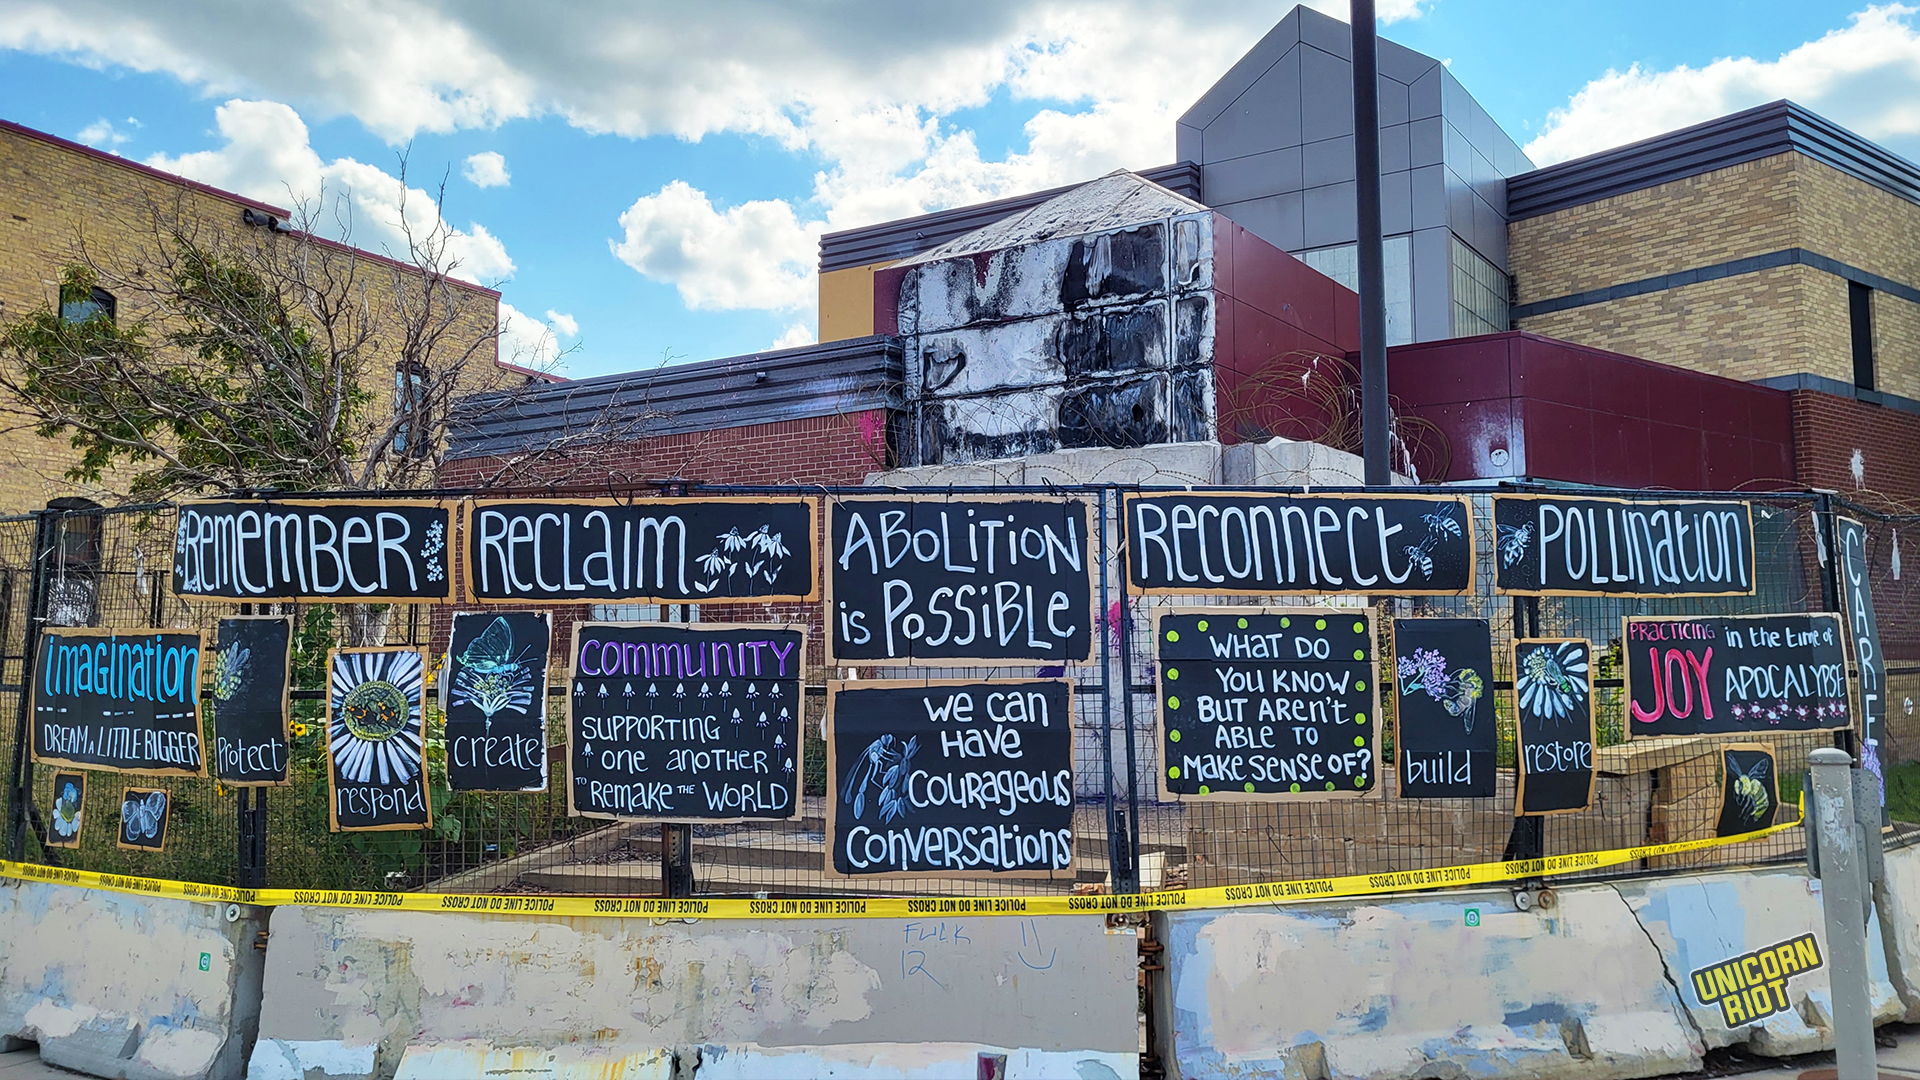 Remember
Reclaim
Abolition
is Possible
Reconnect
Pollination
CARE
imagination
DREAM A LITTLE BIGGER
Protect
respond
create
COMMUNITY
SUPPORTING
one another
TO REMAKE THE WORLD
We can
Have
Courageous
Conversations
WHAT DO
YOU KNOW
BUT AREN'T
ABLE TO
MAKE SENSE OF?
build
restore
PRACTICING in the time of
JOY APOCALYPSE
POLICE LINE DO NOT CROSS POLICE LINE DO NOT CROSS POLICE LINE DO NOT CROSS POLICE LINE DO NOT CROSS POLICE LINE DO NOT CROSS POLICE LINE DO NOT CROSS POLICE LINE DO NOT CROSS
FUCK
12
UNICORN
RIOT